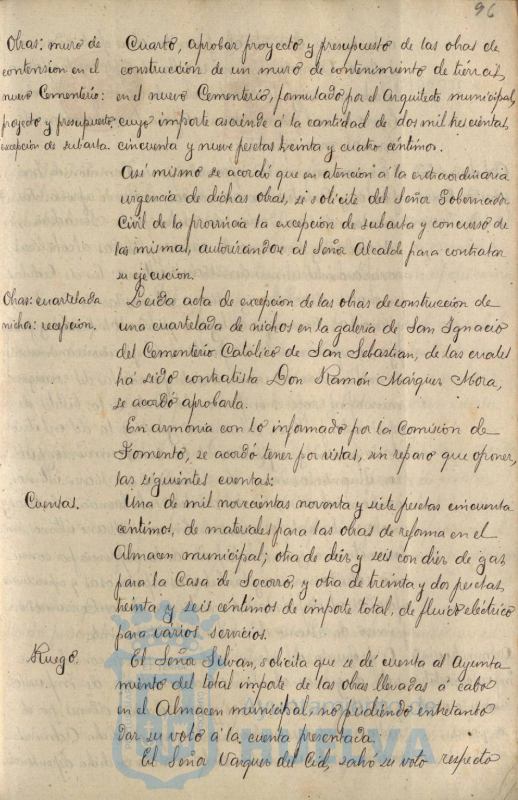 96
Obras: muro de
contension en el
nuevo Cementerio:
proyecto y presupuesto,
excepcion de subasta.
Cuarto, aprobar proyecto y presupuesto de las obras de
construccion de un muro de contenimiento de tierras,
en el nuevo Cementerio, formulado por el Arquitecto municipal,
cuyo importe asciende á la cantidad de dos mil trescientas,
cincuenta y nueve pesetas treinta y cuatro céntimos.
Así mismo se acordó que en atención á la extraordinaria
urgencia de dichas obras, se solicite del Señor Gobernador
Civil de la provincia la excepcion de subasta y concurso de
las mismas, autorizandose al Señor Alcalde para contratar
su ejecución.
Obras: cuartelada
nichos: recepcion.
Leida acta de excepcion de las obras de construccion de
una cuartelada de nichos en la galeria de San Ignacio
del Cementerio Católico de San Sebastian, de las cuales
há sido contratista Don Ramón Maiquer Mora,
se acordó aprobarla.
En armonia con lo informado por la Comision de
Fomento, se acordó tener por vistas, sin reparo que oponer,
las siguientes cuentas:
Cuentas.
Una de mil novecientas noventa y siete pesetas cincuenta
céntimos, de materiales para las obras de reforma en el
Almacen municipal; otra de diez y seis con diez de gas
para la Casa de Socorro, y otra de treinta y dos pesetas,
treinta y seis céntimos de importe total, de fluido eléctrico
para varios servicios.
Ruego.
El Señor Silvan, solicita que se dé cuenta al Ayunta
miento del total importe de las obras llevadas á cabo
en el Almacen municipal, no pudiendo entretanto
dar su voto á la cuenta presentada.
El Señor Vazquez del Cid, salvó su voto respecto
HUELVA